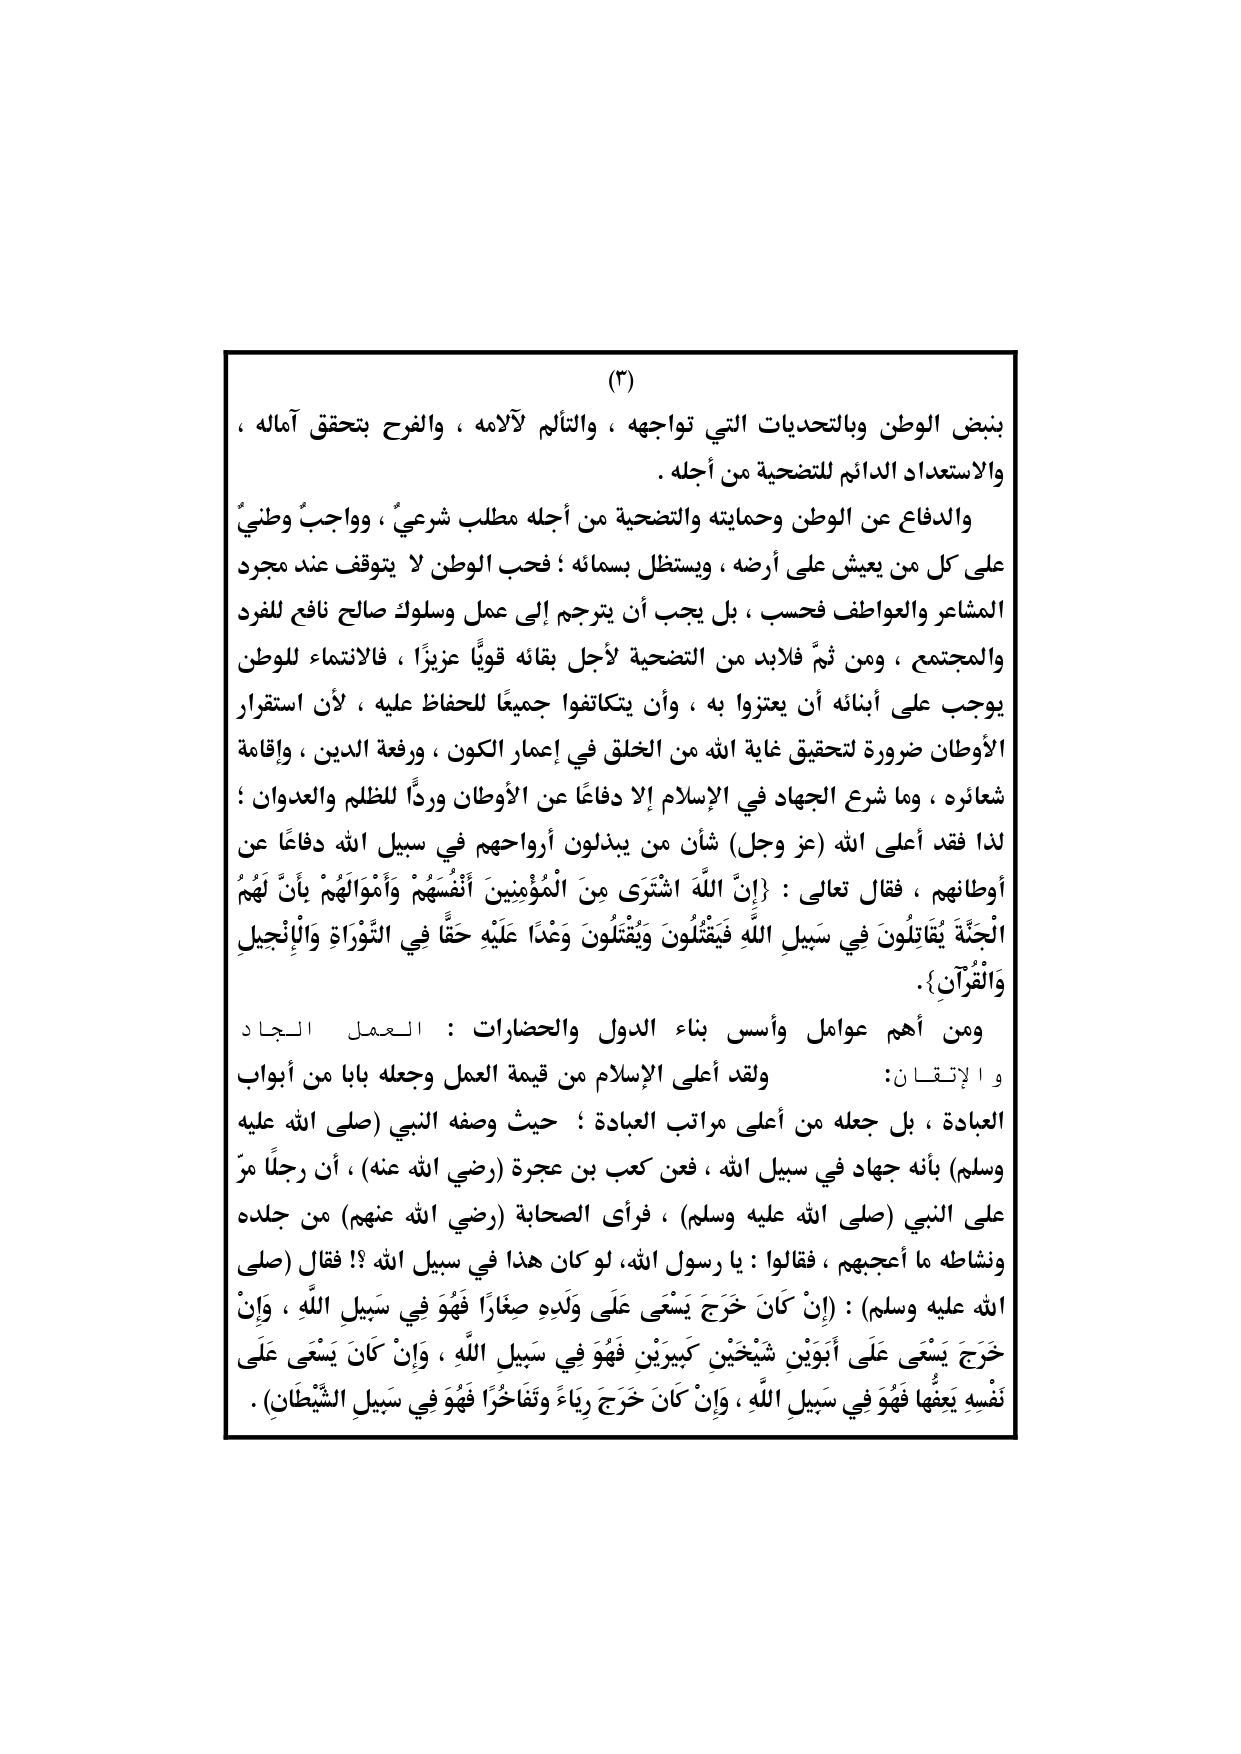 (٣)
بنبض الوطن وبالتحديات التي تواجهه ، والتألم لآلامه ، والفرح بتحقق آماله ،
والاستعداد الدائم للتضحية من أجله .
والدفاع عن الوطن وحمايته والتضحية من أجله مطلب شرعيٌ ، وواجبٌ وطنيٌ
على كل من يعيش على أرضه ، ويستظل بسمائه ؛ فحب الوطن لا يتوقف عند مجرد
المشاعر والعواطف فحسب ، بل يجب أن يترجم إلى عمل وسلوك صالح نافع للفرد
والمجتمع ، ومن ثمَّ فلابد من التضحية لأجل بقائه قويًّا عزيزًا ، فالانتماء للوطن
يوجب على أبنائه أن يعتزوا به ، وأن يتكاتفوا جميعًا للحفاظ عليه ، لأن استقرار
الأوطان ضرورة لتحقيق غاية الله من الخلق في إعمار الكون ، ورفعة الدين ، وإقامة
شعائره ، وما شرع الجهاد في الإسلام إلا دفاعًا عن الأوطان وردًّا للظلم والعدوان ؛
لذا فقد أعلى الله (عز وجل) شأن من يبذلون أرواحهم في سبيل الله دفاعًا عن
أوطانهم ، فقال تعالى : {إِنَّ اللَّهَ اشْتَرَى مِنَ الْمُؤْمِنِينَ أَنْفُسَهُمْ وَأَمْوَالَهُمْ بِأَنَّ لَهُمُ
الْجَنَّةَ يُقَاتِلُونَ فِي سَبِيلِ اللَّهِ فَيَقْتُلُونَ وَيُقْتَلُونَ وَعْدًا عَلَيْهِ حَقًّا فِي التَّوْرَاةِ وَالْإِنْجِيلِ
وَالْقُرْآنِ}.
ومن أهم عوامل وأسس بناء الدول والحضارات : العمل الجاد
والإتقان: ولقد أعلى الإسلام من قيمة العمل وجعله بابا من أبواب
العبادة ، بل جعله من أعلى مراتب العبادة ؛ حيث وصفه النبي (صلى الله عليه
وسلم) بأنه جهاد في سبيل الله ، فعن كعب بن عجرة (رضي الله عنه) ، أن رجلًا مرّ
على النبي (صلى الله عليه وسلم) ، فرأى الصحابة (رضي الله عنهم) من جلده
ونشاطه ما أعجبهم ، فقالوا : يا رسول الله، لو كان هذا في سبيل الله ؟! فقال (صلى
الله عليه وسلم) : (إِنْ كَانَ خَرَجَ يَسْعَى عَلَى وَلَدِهِ صِغَارًا فَهُوَ فِي سَبِيلِ اللَّهِ ، وَإِنْ
خَرَجَ يَسْعَى عَلَى أَبَوَيْنِ شَيْخَيْنِ كَبِيرَيْنِ فَهُوَ فِي سَبِيلِ اللَّهِ ، وَإِنْ كَانَ يَسْعَى عَلَى
نَفْسِهِ يَعِفُّها فَهُوَ فِي سَبِيلِ اللَّهِ ، وَإِنْ كَانَ خَرَجَ رِيَاءً وتَفَاخُرًا فَهُوَ فِي سَبِيلِ الشَّيْطَانِ) .